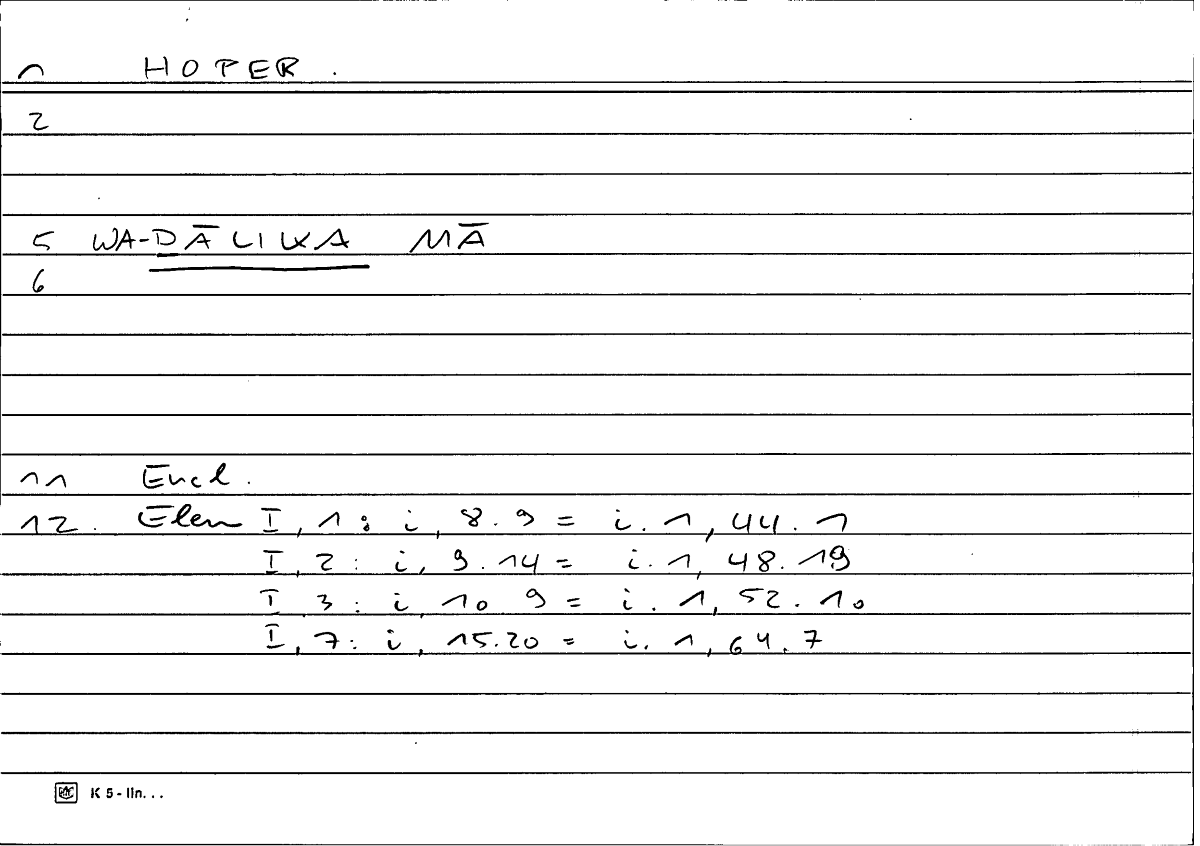 1 HOPER.
2
5 WA-ḎĀLIKA MĀ
6
11 Eucl.
12. Elem I, 1: i, 8.9 = i.1, 44.1
I, 2: i, 9.14 = i.1, 48.19
I 3: i, 10 9 = i.1, 52.10
I, 7: i, 15.20 = i.1, 64.7
K 5 - lin. . .